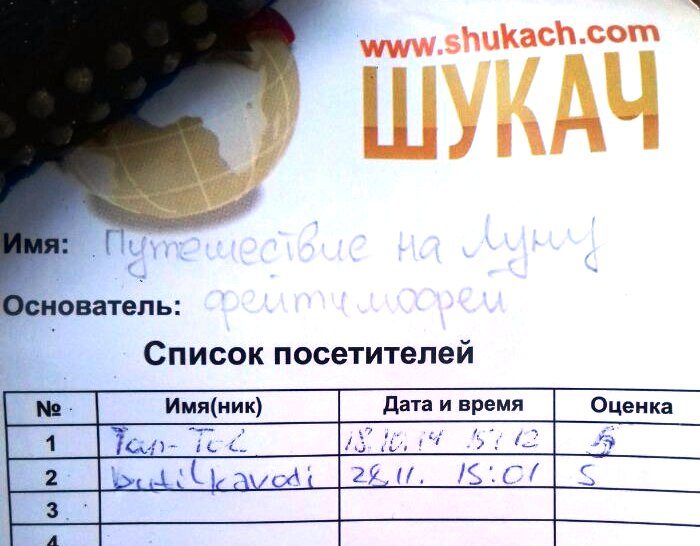 www.shukach.com
ШУКАЧ
Имя: Путешествие на Луну
Основатель: фейтимофей
Список посетителей
№ Имя(ник) Дата и время Оценка
1 Tan-Tol 18.10.14 15:12 5
2 butilkavodi 28.11. 15:01 5
3
4